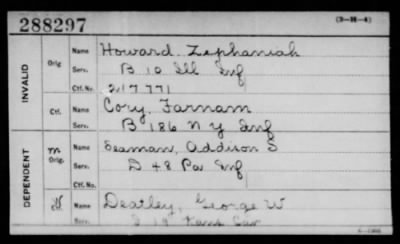 288297
(3-H-4)
INVALID
Orig
Name Howard Zephaniah
Serv. B 10 Ill Inf
Ctf. No. 217771
Ctf.
Name Cory, Farnam
Serv. B 186 N Y Inf
DEPENDENT
M Orig.
Name Seaman, Addison S
Serv. D 48 Pa Inf
Ctf. No.
W Ctf.
Name Deatley, George W
Serv. 19 Kans Cav